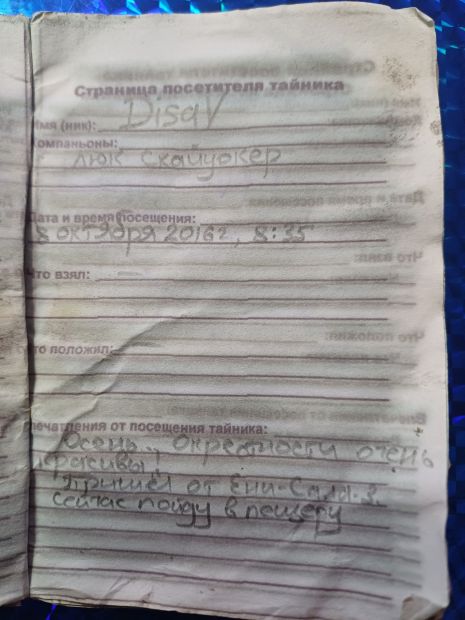 Страница посетителя тайника
Имя (ник): Disav
Компаньоны:
Люк Скайуокер
Дата и время посещения:
8 октября 2016г, 8:35
Что взял:
Что положил:
Впечатления от посещения тайника:
Осень, окрестности очень
красивы,
Пришел от Ени-Сала-3.
сейчас пойду в пещеру